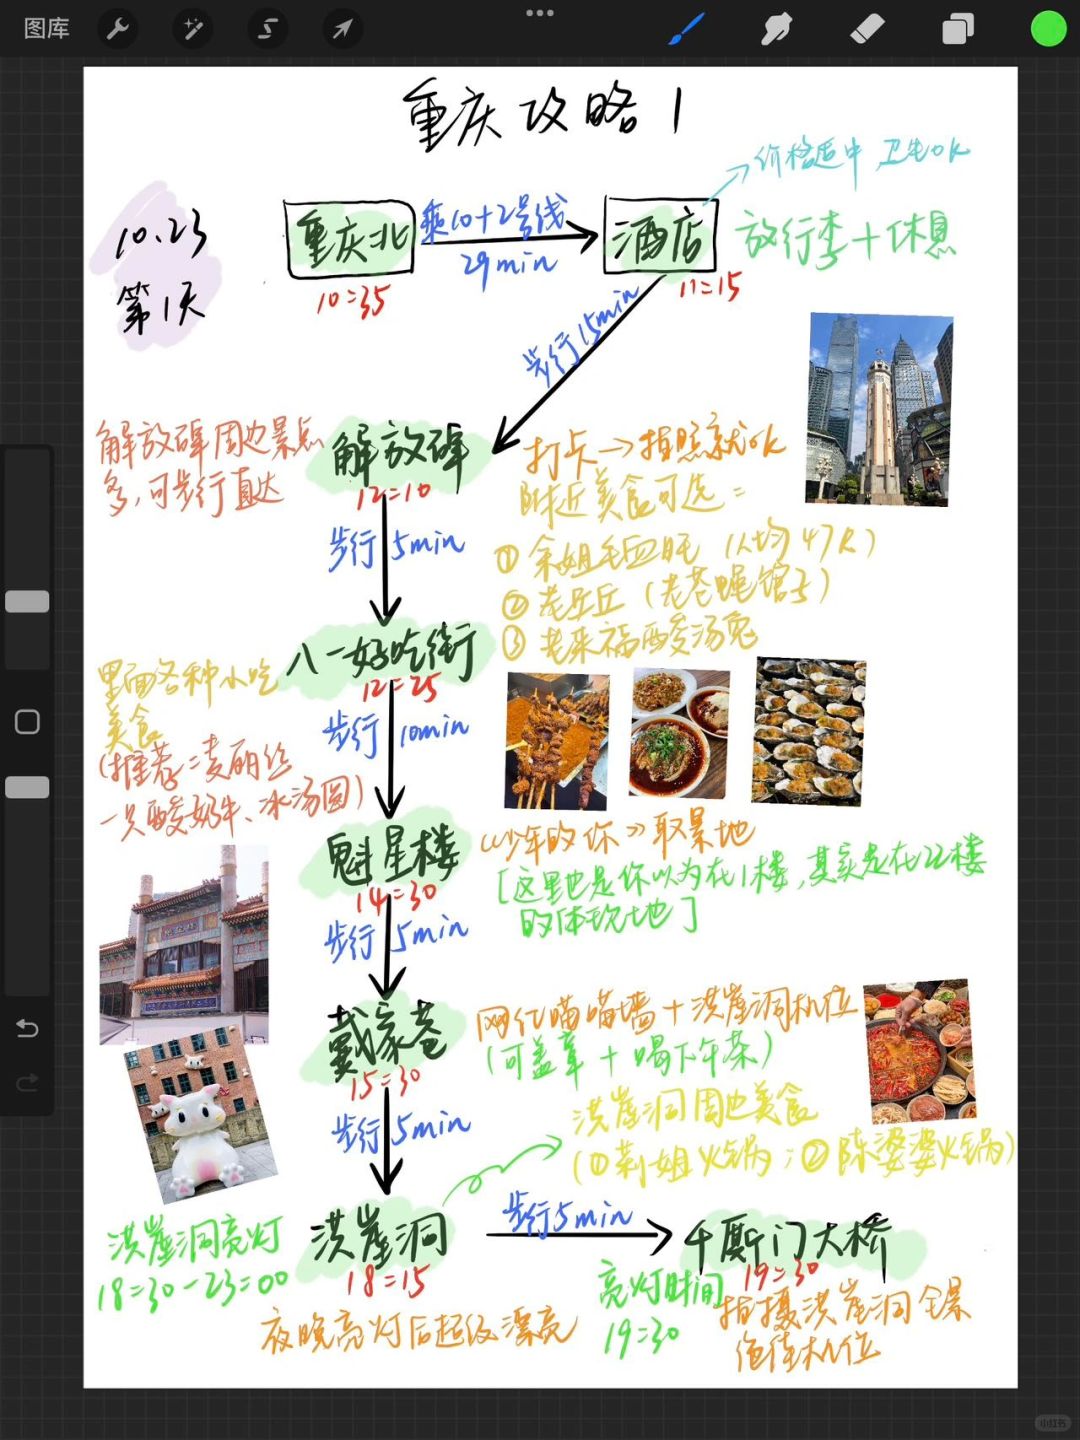 图库
重庆攻略1
价格适中 卫生ok
10.23
第1天
重庆北
10:35
乘10+2号线
29min
酒店
11:15
放行李+休息
步行15min
解放碑周边景点
多,可步行直达
解放碑
12:10
打卡→拍照就ok
附近美食可选:
①余姐毛血旺(人均47R)
②老丘丘(老苍蝇馆子)
③老来福酸汤兔
步行5min
八一好吃街
12:25
里面各种小吃
美食
(推荐:麦丽丝
一只酸奶牛、冰汤圆)
步行10min
魁星楼
14:30
《少年的你》取景地
[这里也是你以为在1楼,其实是在22楼
的体现地]
步行5min
戴家巷
15:30
网红喵喵墙+洪崖洞机位
(可盖章+喝下午茶)
步行5min
洪崖洞周边美食
(①莉姐火锅;②陈婆婆火锅)
洪崖洞亮灯
18:30-23:00
洪崖洞
18:15
夜晚亮灯后超级漂亮
步行5min
千厮门大桥
19:30
亮灯时间
19:30
拍摄洪崖洞全景
绝佳机位
小红书